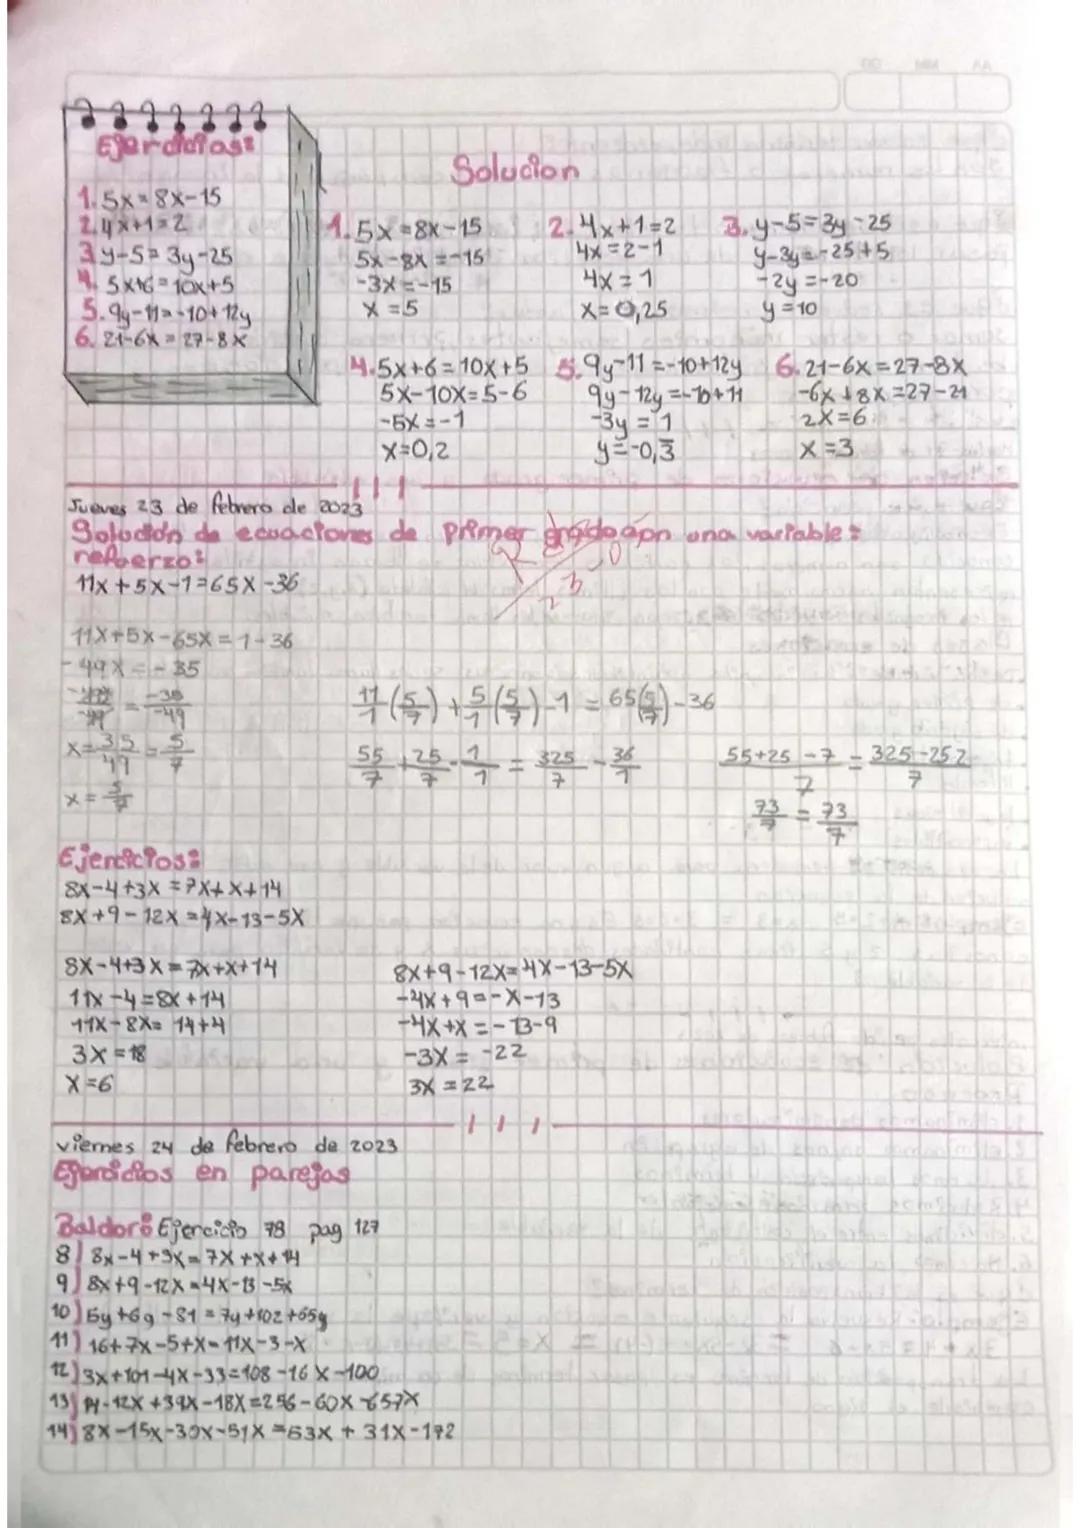 AA MM DD
Ejercicios:
1. 5x=8x-15
2. 4x+1=2
3 y-5=3y-25
4. 5x+6=10x+5
5. 9y-11=-10+12y
6. 21-6x=27-8x
Solucion
1. 5x=8x-15
5x-8x=-15
-3x=-15
x=5
2. 4x+1=2
4x=2-1
4x=1
x=0,25
3. y-5=3y-25
y-3y=-25+5
-2y=-20
y=10
4. 5x+6=10x+5
5x-10x=5-6
-5x=-1
x=0,2
5. 9y-11=-10+12y
9y-12y=-10+11
-3y=1
y=-0,3̅
6. 21-6x=27-8x
-6x+8x=27-21
2x=6
x=3
Jueves 23 de febrero de 2023
Solución de ecuaciones de primer grado con una variable:
refuerzo:
11x+5x-1=65x-36
11x+5x-65x=1-36
-49x=-35
-49x/-49 = -35/-49
x=35/49=5/7
x=5/7
11/1(5/7)+5/1(5/7)-1=65(5/7)-36
55/7+25/7-1/1=325/7-36/1
55+25-7/7=325-252/7
73/7=73/7
Ejercicios:
8x-4+3x=7x+x+14
8x+9-12x=4x-13-5x
8x-4+3x=7x+x+14
11x-4=8x+14
11x-8x=14+4
3x=18
x=6
8x+9-12x=4x-13-5x
-4x+9=-x-13
-4x+x=-13-9
-3x=-22
3x=22
viernes 24 de febrero de 2023
Ejercicios en parejas
Baldor: Ejercicio 78 pag 127
8) 8x-4+3x=7x+x+14
9) 8x+9-12x=4x-13-5x
10) 5y+6y-81=7y+102+65y
11) 16+7x-5+x=11x-3-x
12) 3x+101-4x-33=108-16x-100
13) 14-12x+39x-18x=256-60x-657x
14) 8x-15x-30x-51x=53x+31x-172